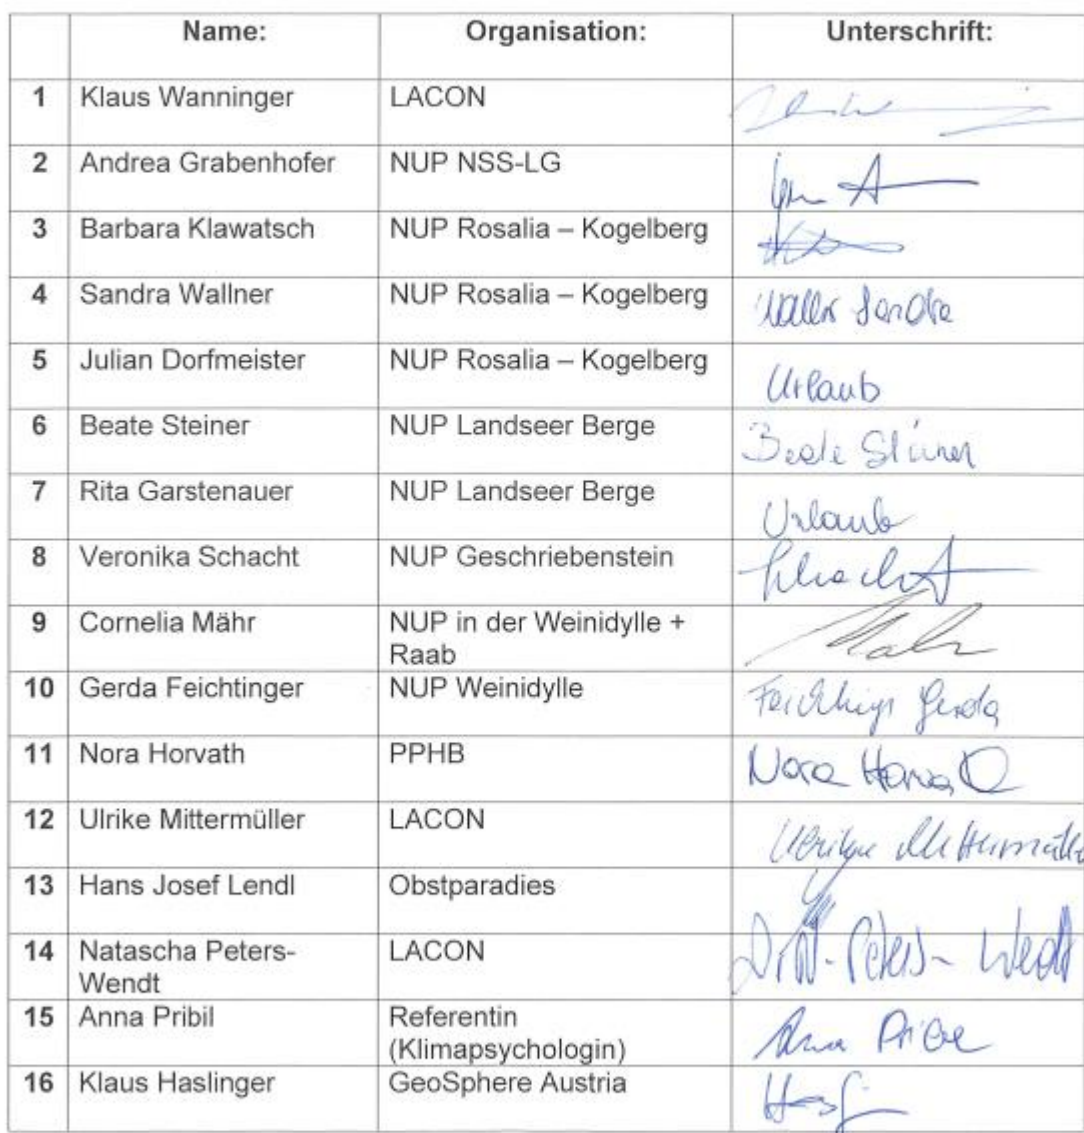 Name: Organisation: Unterschrift:
1 Klaus Wanninger LACON
2 Andrea Grabenhofer NUP NSS-LG
3 Barbara Klawatsch NUP Rosalia – Kogelberg
4 Sandra Wallner NUP Rosalia – Kogelberg Waller Sandra
5 Julian Dorfmeister NUP Rosalia – Kogelberg Urlaub
6 Beate Steiner NUP Landseer Berge Beate Steiner
7 Rita Garstenauer NUP Landseer Berge Urlaub
8 Veronika Schacht NUP Geschriebenstein Schacht
9 Cornelia Mähr NUP in der Weinidylle +
Raab
10 Gerda Feichtinger NUP Weinidylle Feichtinger Gerda
11 Nora Horvath PPHB Nora Horvath
12 Ulrike Mittermüller LACON Ulrike Mittermüller
13 Hans Josef Lendl Obstparadies
14 Natascha Peters- LACON Peters- Wendt
Wendt
15 Anna Pribil Referentin Anna Pribil
(Klimapsychologin)
16 Klaus Haslinger GeoSphere Austria